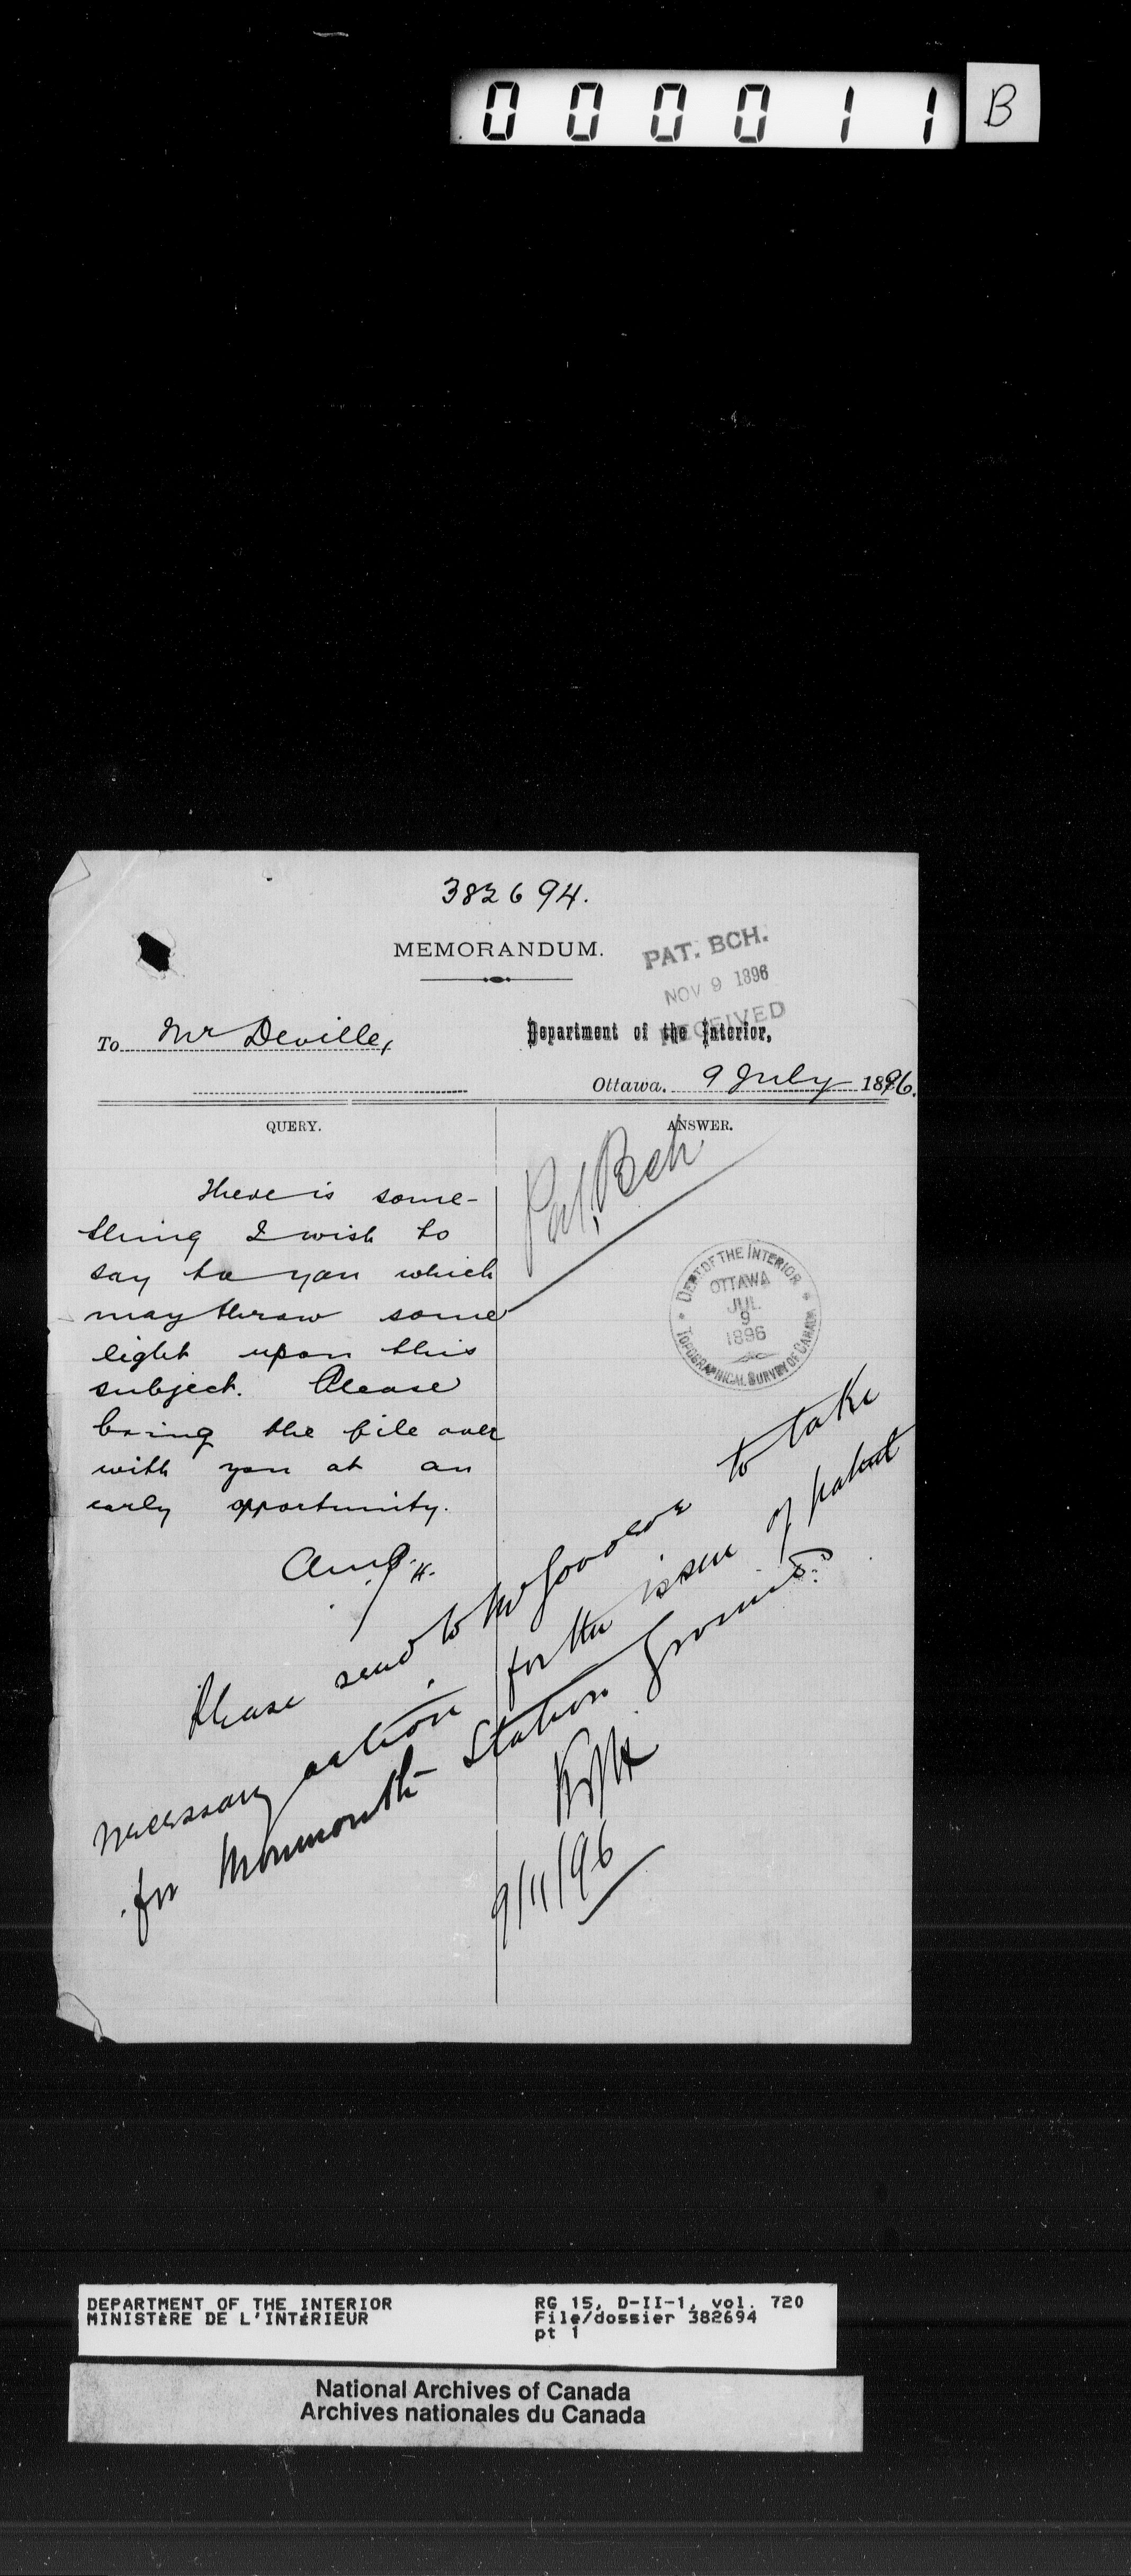 000011 B
382694.
MEMORANDUM.
PAT. BCH.
NOV 9 1896
RECEIVED
To Mr Deville,
Department of the Interior,
Ottawa. 9 July 1896.
QUERY.
ANSWER.
Pat. Bch
There is some-
thing I wish to
say to you which
may throw some
light upon this
subject. Please
bring the file over
with you at an
early opportunity.
DEPT OF THE INTERIOR
OTTAWA
JUL
9
1896
TOPOGRAPHICAL SURVEY OF CANADA
Please send to Mr Goodeve to take
necessary action for the issue of patent
for Monmouth Station Grounds.
9/11/96
DEPARTMENT OF THE INTERIOR
MINISTÈRE DE L'INTÉRIEUR
RG 15, D-II-1, vol. 720
File/dossier 382694
pt 1
National Archives of Canada
Archives nationales du Canada